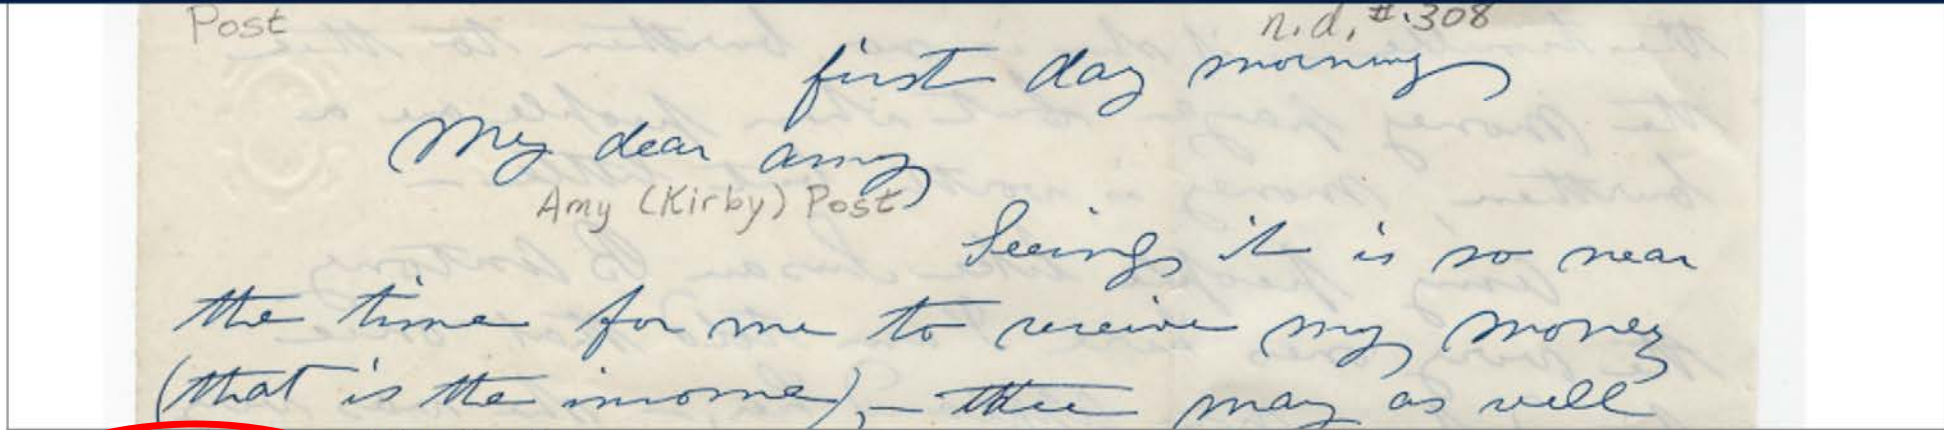 Post
n.d. #.308
first day morning
My dear Amy
Amy (Kirby) Post
Seeing it is so near
the time for me to receive my money
(that is the income), – thee may as well